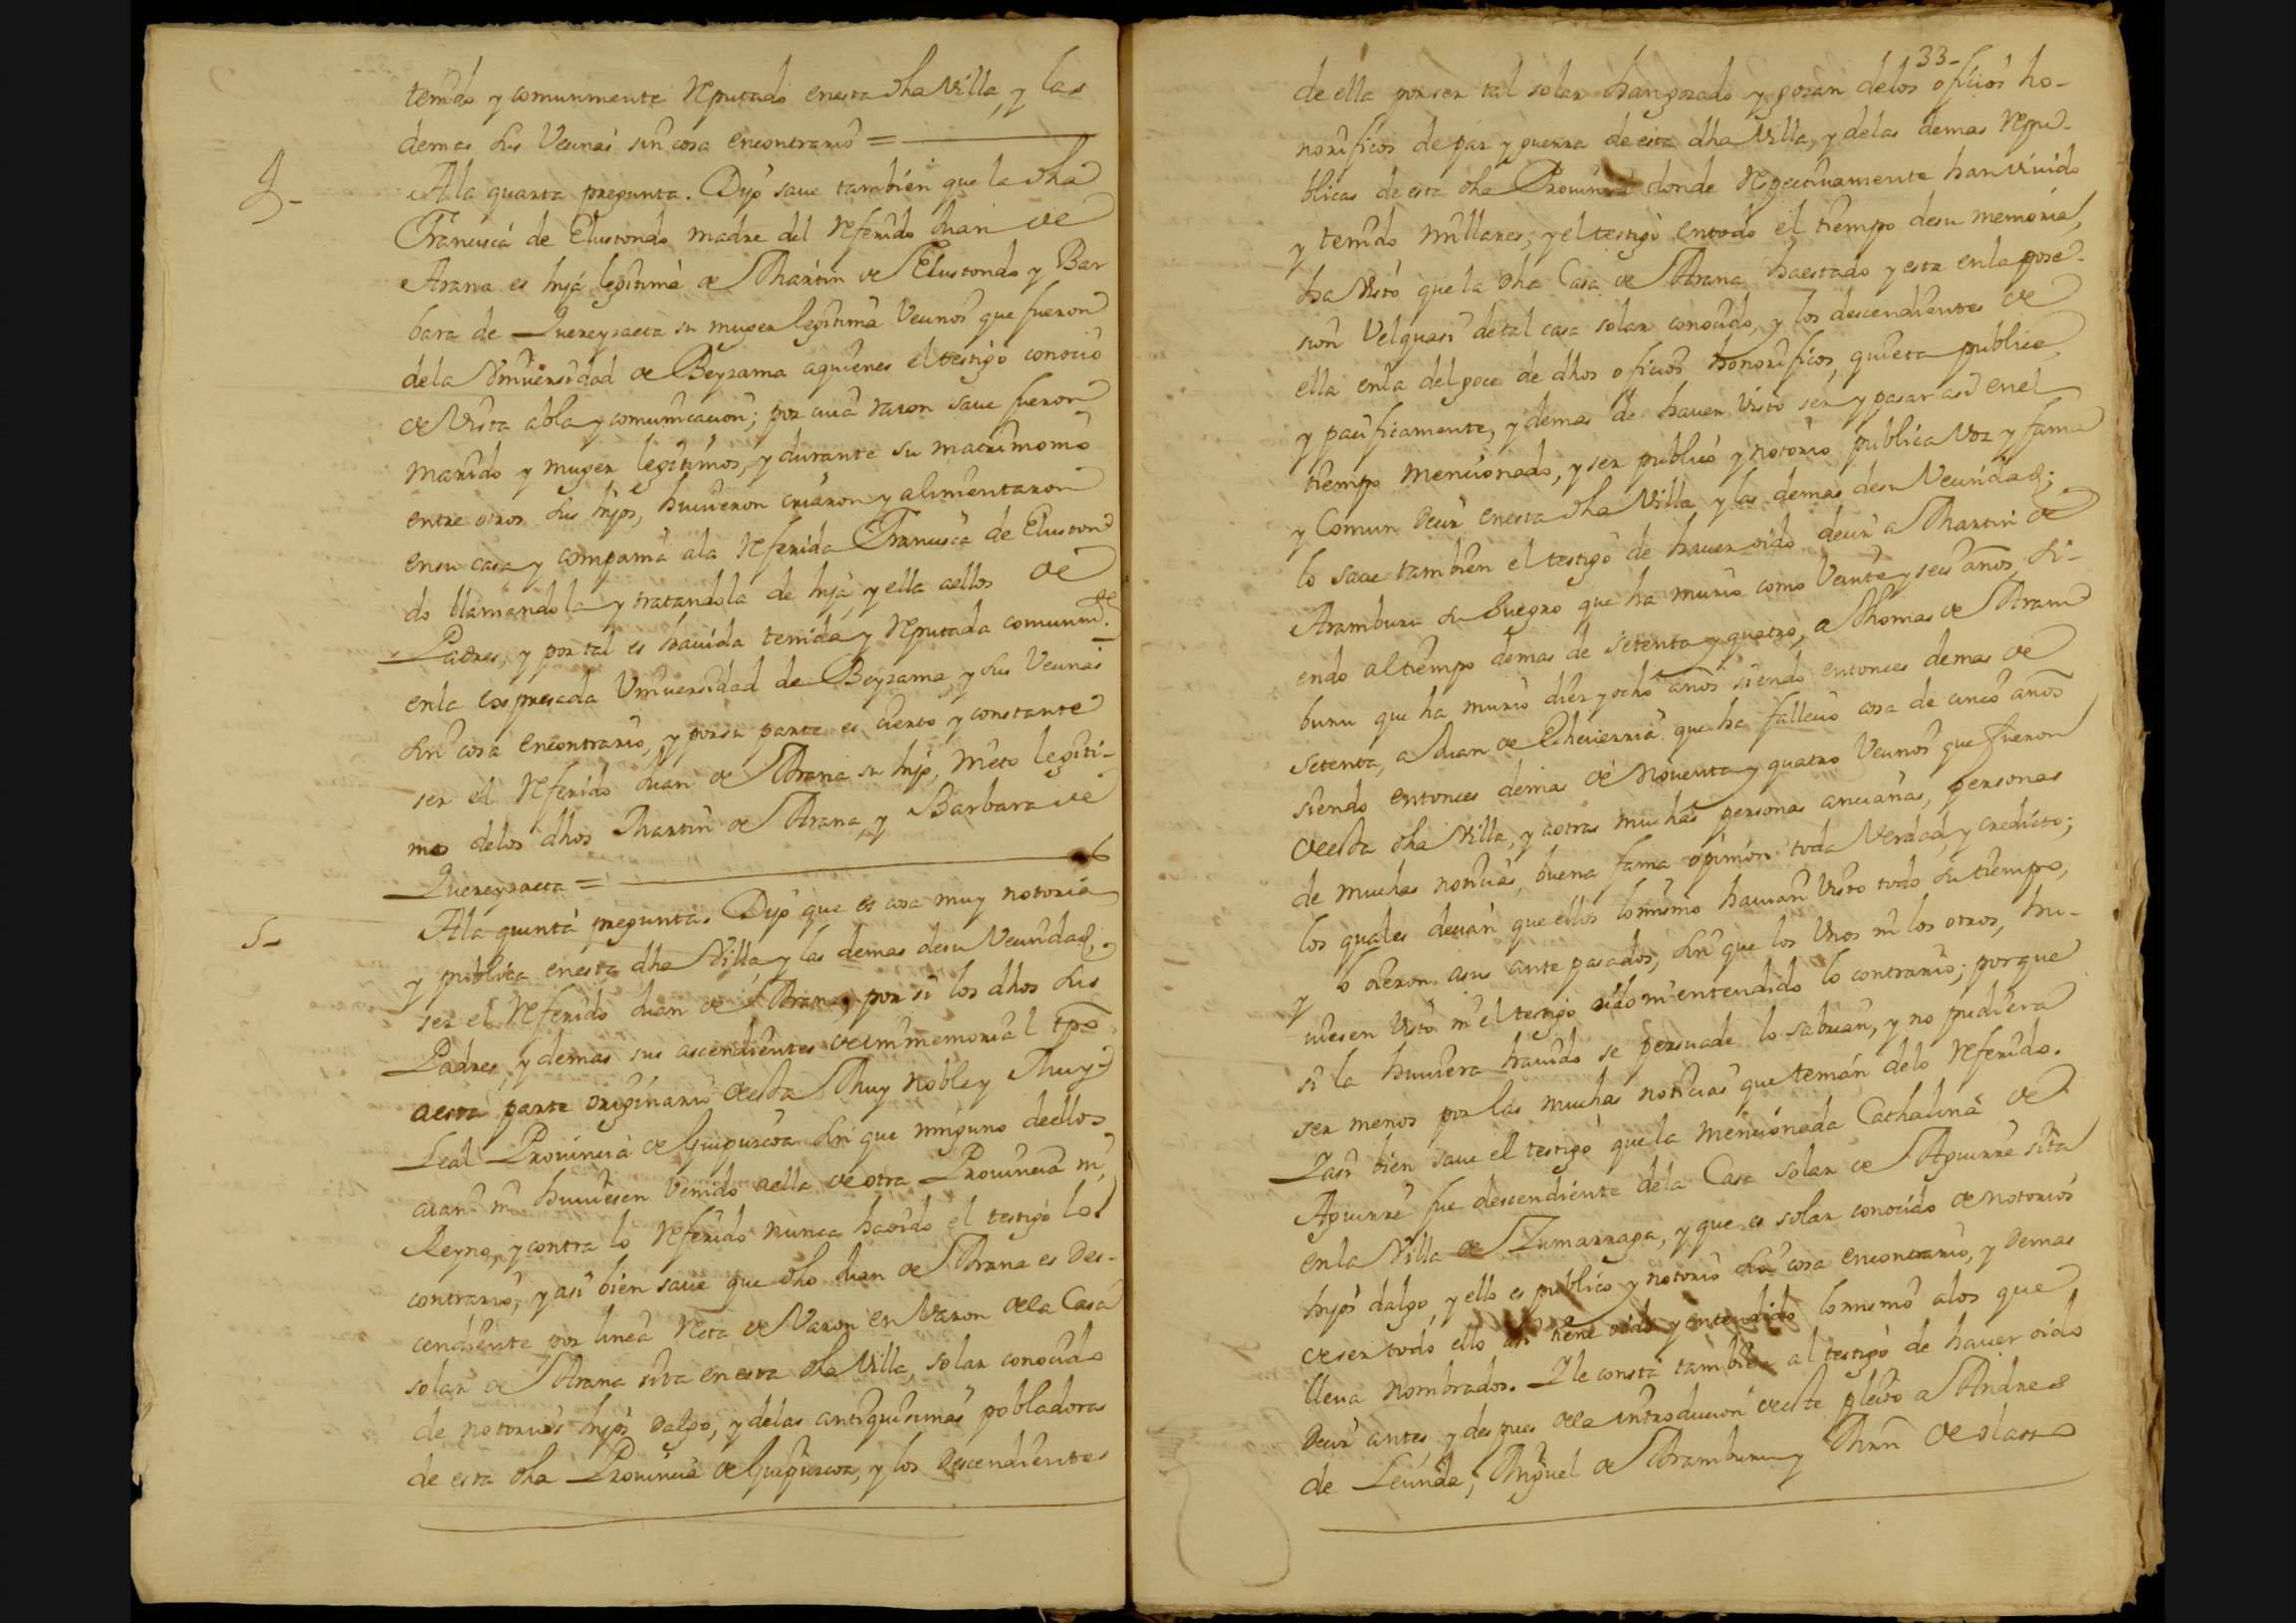 tenido y comunmente Reputado enesta dha Villa, y las
demas sus Vecinas sin cosa encontrario =
4-
Ala quarta pregunta. Dijo save tambien que la dha
Francisca de Elustondo madre del Referido Juan de
Arana es hija legitima de Martin de Elustondo y Bar
bara de Quereyzaeta su muger legitima Vecinos que fueron
dela Vniversidad de Beyzama aquienes el testigo conocio
de Vista abla y comunicacion; por cuia razon save fueron
marido y muger legitimos, y durante su matrimonio
entre otros sus hijos, huuieron criaron y alimentaron
ensu casa y compania ala Referida Francisca de Eluston
do llamandola y tratandola de hija, y ella aellos de
Padres, y por tal es hauida tenida y Reputada comunmte.
enla expresada Vniversidad de Beyzama, y sus Vecinas
sin cosa encontrario, y porsta parte es cierto y constante
ser el Referido Juan de Arana su hijo, nieto legiti-
mo delos dhos Martin de Arana, y Barbara de
Quereyzaeta =
5-
Ala quinta pregunta. Dijo que es cosa muy notoria
y publica enesta dha Villa y las demas desu Vecindad,
ser el Referido Juan de Arana, por si los dhos sus
Padres, y demas sus ascendientes de immemorial tpo
aesta parte originario desta Muy noble y Muy
Leal Provincia de Guipuzcoa sin que ninguno dellos
aian ni huuiesen venido aella de otra Provincia ni
Reyno, y contra lo Referido nunca haoido el testigo lo
contrario, y asi bien save que dho Juan de Arana es Des-
cendiente por linea Recta de Varon en Varon dela Casa
solar de Arana sita en esta dha Villa, solar conocido
de notorios hijos Dalgo, y delas antiquisimas pobladoras
de esta dha Provincia de Guipuzcoa, y los Descendientes
33-
de ella por ser tal solar hangozado y gozan delos oficios ho-
norificos de paz y guerra de esta dha Villa, y delas demas Repu-
blicas de esta dha Provincia donde Respectivamente han viuido
y tenido millares; y el testigo entodo el tiempo desu memoria,
ha Visto que la dha Casa de Arana haestado y esta enla pose-
sion Velquasi detal casa solar conocido, y los descendientes de
ella enla del goce de dhos oficios honorificos, quieta publica
y pacificamente, y demas de hauer Visto ser y pasar asi enel
tiempo mencionado, y ser publico y notorio publica Voz y fama
y Comun Decir enesta dha Villa y las demas desu Vecindad;
lo save tambien el testigo de hauer oido decir a Martin de
Aramburu su Suegro que ha murio como Veinte y seis años, si-
endo altiempo demas de setenta y quatro, a Thomas de Aram
buru que ha murio diez y ocho años siendo entonces demas de
setenta, a Juan de Echeverria que ha fallecio cosa de cinco años
siendo entonces demas de noventa y quatro Vecinos que fueron
desta dha Villa, y aotras muchas personas ancianas, personas
de muchas noticias, buena fama opinion toda Verdad y credicto;
los quales decian que ellos lo mismo hauian Visto todo su tiempo,
y lo oieron asus ante pasados, sin que los Vnos ni los otros, hu-
uiesen Visto ni el testigo oido ni entendido lo contrario; porque
si la huuiera hauido se persuade lo sabrian, y no pudiera
ser menos por las muchas noticias que tenian delo Referido.
Yasi bien save el testigo que la mencionada Cathalina de
Aguirre fue descendiente dela Casa Solar de Aguirre sita
enla Villa de Zumarraga, y que es solar conocido de notorios
hijos dalgo, y ello es publico y notorio sin cosa encontrario, y Demas
deser todo ello asi tiene oido y entendido lo mismo alos que
lleua nombrados. Yle consta tambien al testigo de hauer oido
Decir antes, y despues dela introducion deste pleito a Andres
de Leunda, Miguel de Aramburu y Mrn de olasso